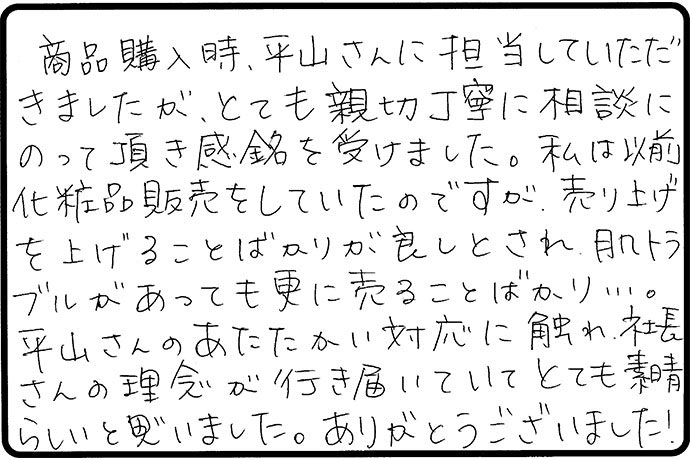 商品購入時、平山さんに担当していただ
きましたが、とても親切丁寧に相談に
のって頂き感銘を受けました。私は以前
化粧品販売をしていたのですが、売り上げ
を上げることばかりが良しとされ、肌トラ
ブルがあっても更に売ることばかり…。
平山さんのあたたかい対応に触れ、社長
さんの理念が行き届いていてとても素晴
らしいと思いました。ありがとうございました！